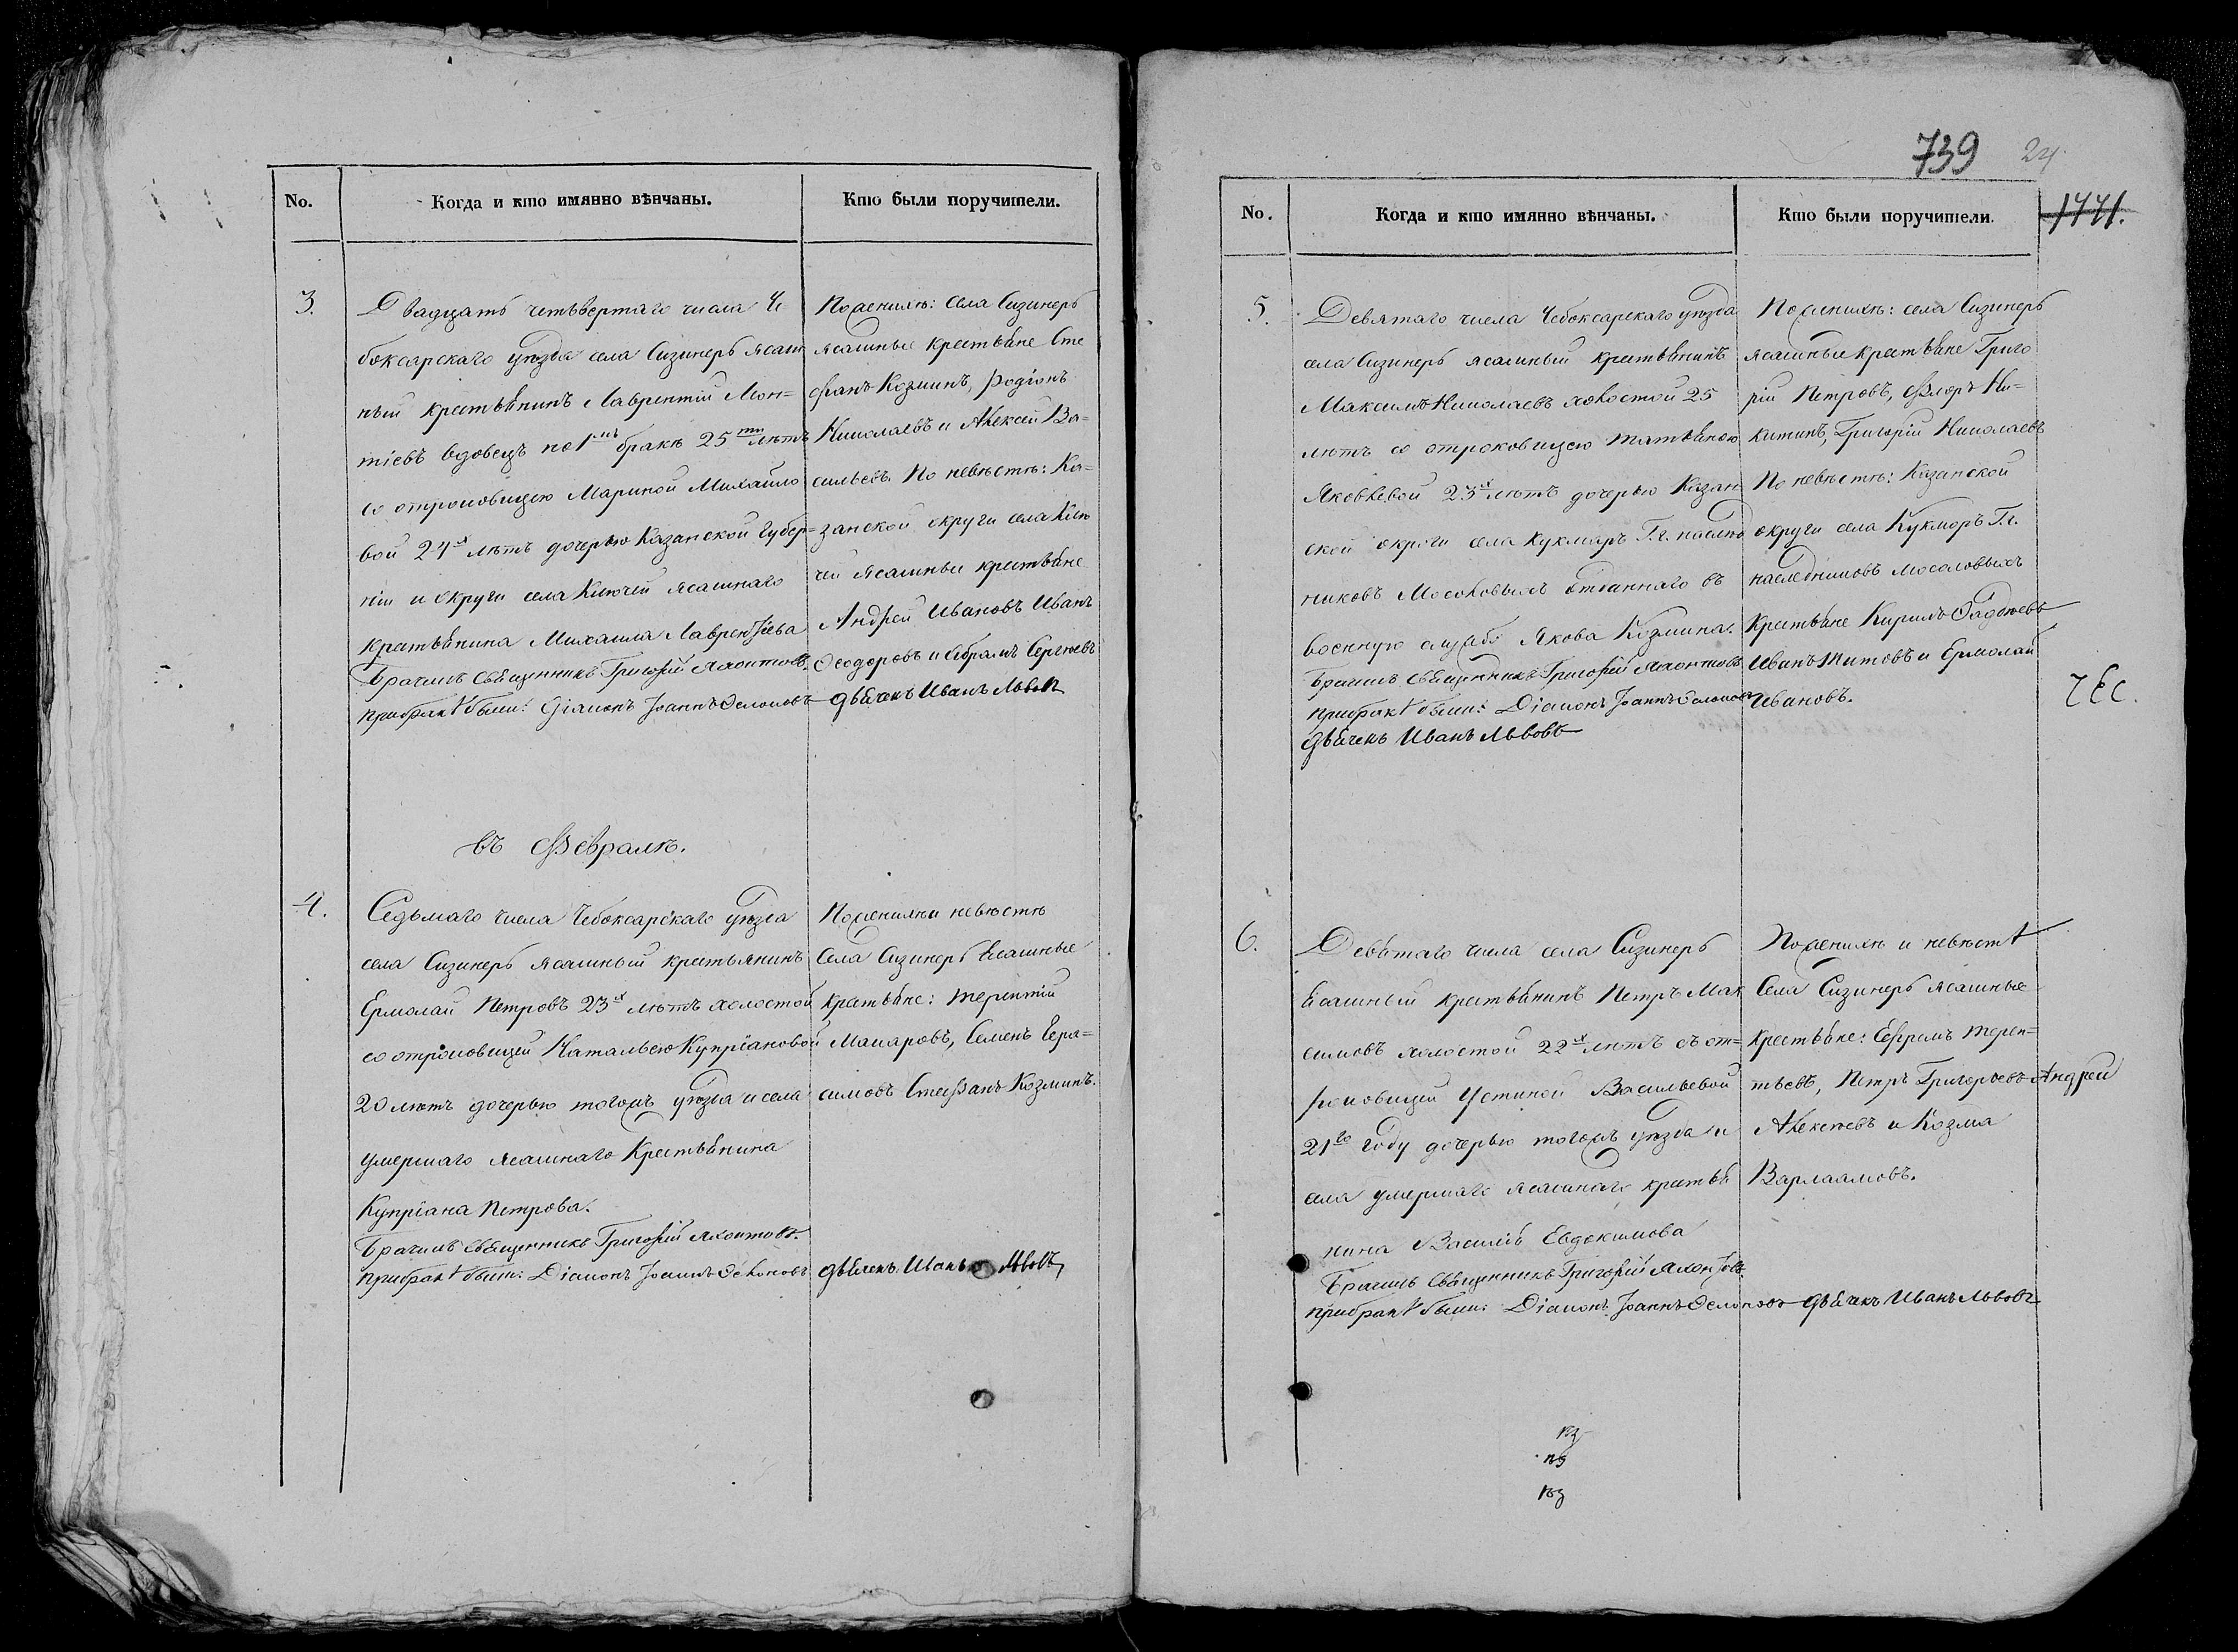 No.
Когда и кто имянно вѣнчаны.
Кто были поручители.
3.
Двадцать четьвертаго числа Че
боксарскаго уѣзда села Сизинеръ ясаш
ный крестьянинъ Лаврентій Мон=
тіевъ вдовецъ по 1мъ бракѣ 25ти лѣтъ
со отроковицею Мариной Михайло
вой 24х лѣтъ дочерью Казанской Губер=
ніи и округи села Ключей ясашнаго
крестьянина Михаила Лаврентіева
Брачилъ Священникъ Григорій Яхонтовъ.
при бракѣ были: Діаконъ Іоаннъ
По женихѣ: села Сизинеръ
ясашные крестьяне Сте
фанъ Козминъ, Родіонъ
Николаевъ и Алексей Ва=
сильевъ. По невѣстѣ: Ка=
занской округи села Клю
чей ясашные крестьяне
Андрей Ивановъ Иванъ
Феодоровъ и Абрамъ Сергѣевъ
дьячекъ Иванъ Львовъ
въ Февралѣ.
4.
Седьмаго числа Чебоксарскаго уѣзда
села Сизинеръ ясашный крестьянинъ
Ермолай Петровъ 23х лѣтъ холостой
со отроковицей Натальею Купріановой
20 лѣтъ дочерью тогожъ уѣзда и села
умершаго ясашнаго Крестьянина
Купріана Петрова.
Брачилъ Священникъ Григорій Яхонтовъ.
при бракѣ были: Діаконъ Іоаннъ
По женихѣ и невѣстѣ
Села Сизинеръ Ясашные
крестьяне: Терентій
Макаровъ, Семенъ Гера=
симовъ Стефанъ Козминъ.
дьячекъ Иванъ Львовъ
739 24.
No.
Когда и кто имянно вѣнчаны.
Кто были поручители.
1771.
5.
Девятаго числа Чебоксарскаго уѣзда
села Сизинеръ ясашный крестьянинъ
Максимъ Николаевъ холостой 25
лѣтъ со отроковицею Татьяною
Яковлевой 23х лѣтъ дочерью Казан
ской округи села Кукмаръ Г.г. наслѣд
никовъ Мосоловыхъ отданнаго въ
военную службу Якова Козмина.
Брачилъ Священникъ Григорій Яхонтовъ
при бракѣ были: Діаконъ Іоаннъ
дьячекъ Иванъ Львовъ
По женихѣ: села Сизинеръ
ясашные крестьяне Григо
рій Петровъ, Флоръ Ни=
китинъ, Григорій Николаевъ
По невѣстѣ: Казанской
округи села Кукморъ Г.г.
наследниковъ Мосоловыхъ
Крестьяне Кирилъ Фадѣевъ
Иванъ Титовъ и Ермолай
Ивановъ.
6.
Девятаго числа села Сизинеръ
ясашный крестьянинъ Петръ Мак
симовъ холостой 22х лѣтъ съ от=
роковицей Устиной Васильевой
21го году дочерью тогожъ уѣзда и
села умершаго ясашнаго крестья
нина Василія Евдокимова
Брачилъ Священникъ Григорій Яхонтовъ.
при бракѣ были: Діаконъ Іоаннъ дьячекъ Иванъ Львовъ
По женихѣ и невѣстѣ
Села Сизинеръ ясашные
крестьяне: Ефремъ Терен=
тьевъ, Петръ Григорьевъ Андрей
Алексѣевъ и Козма
Варлаамовъ.